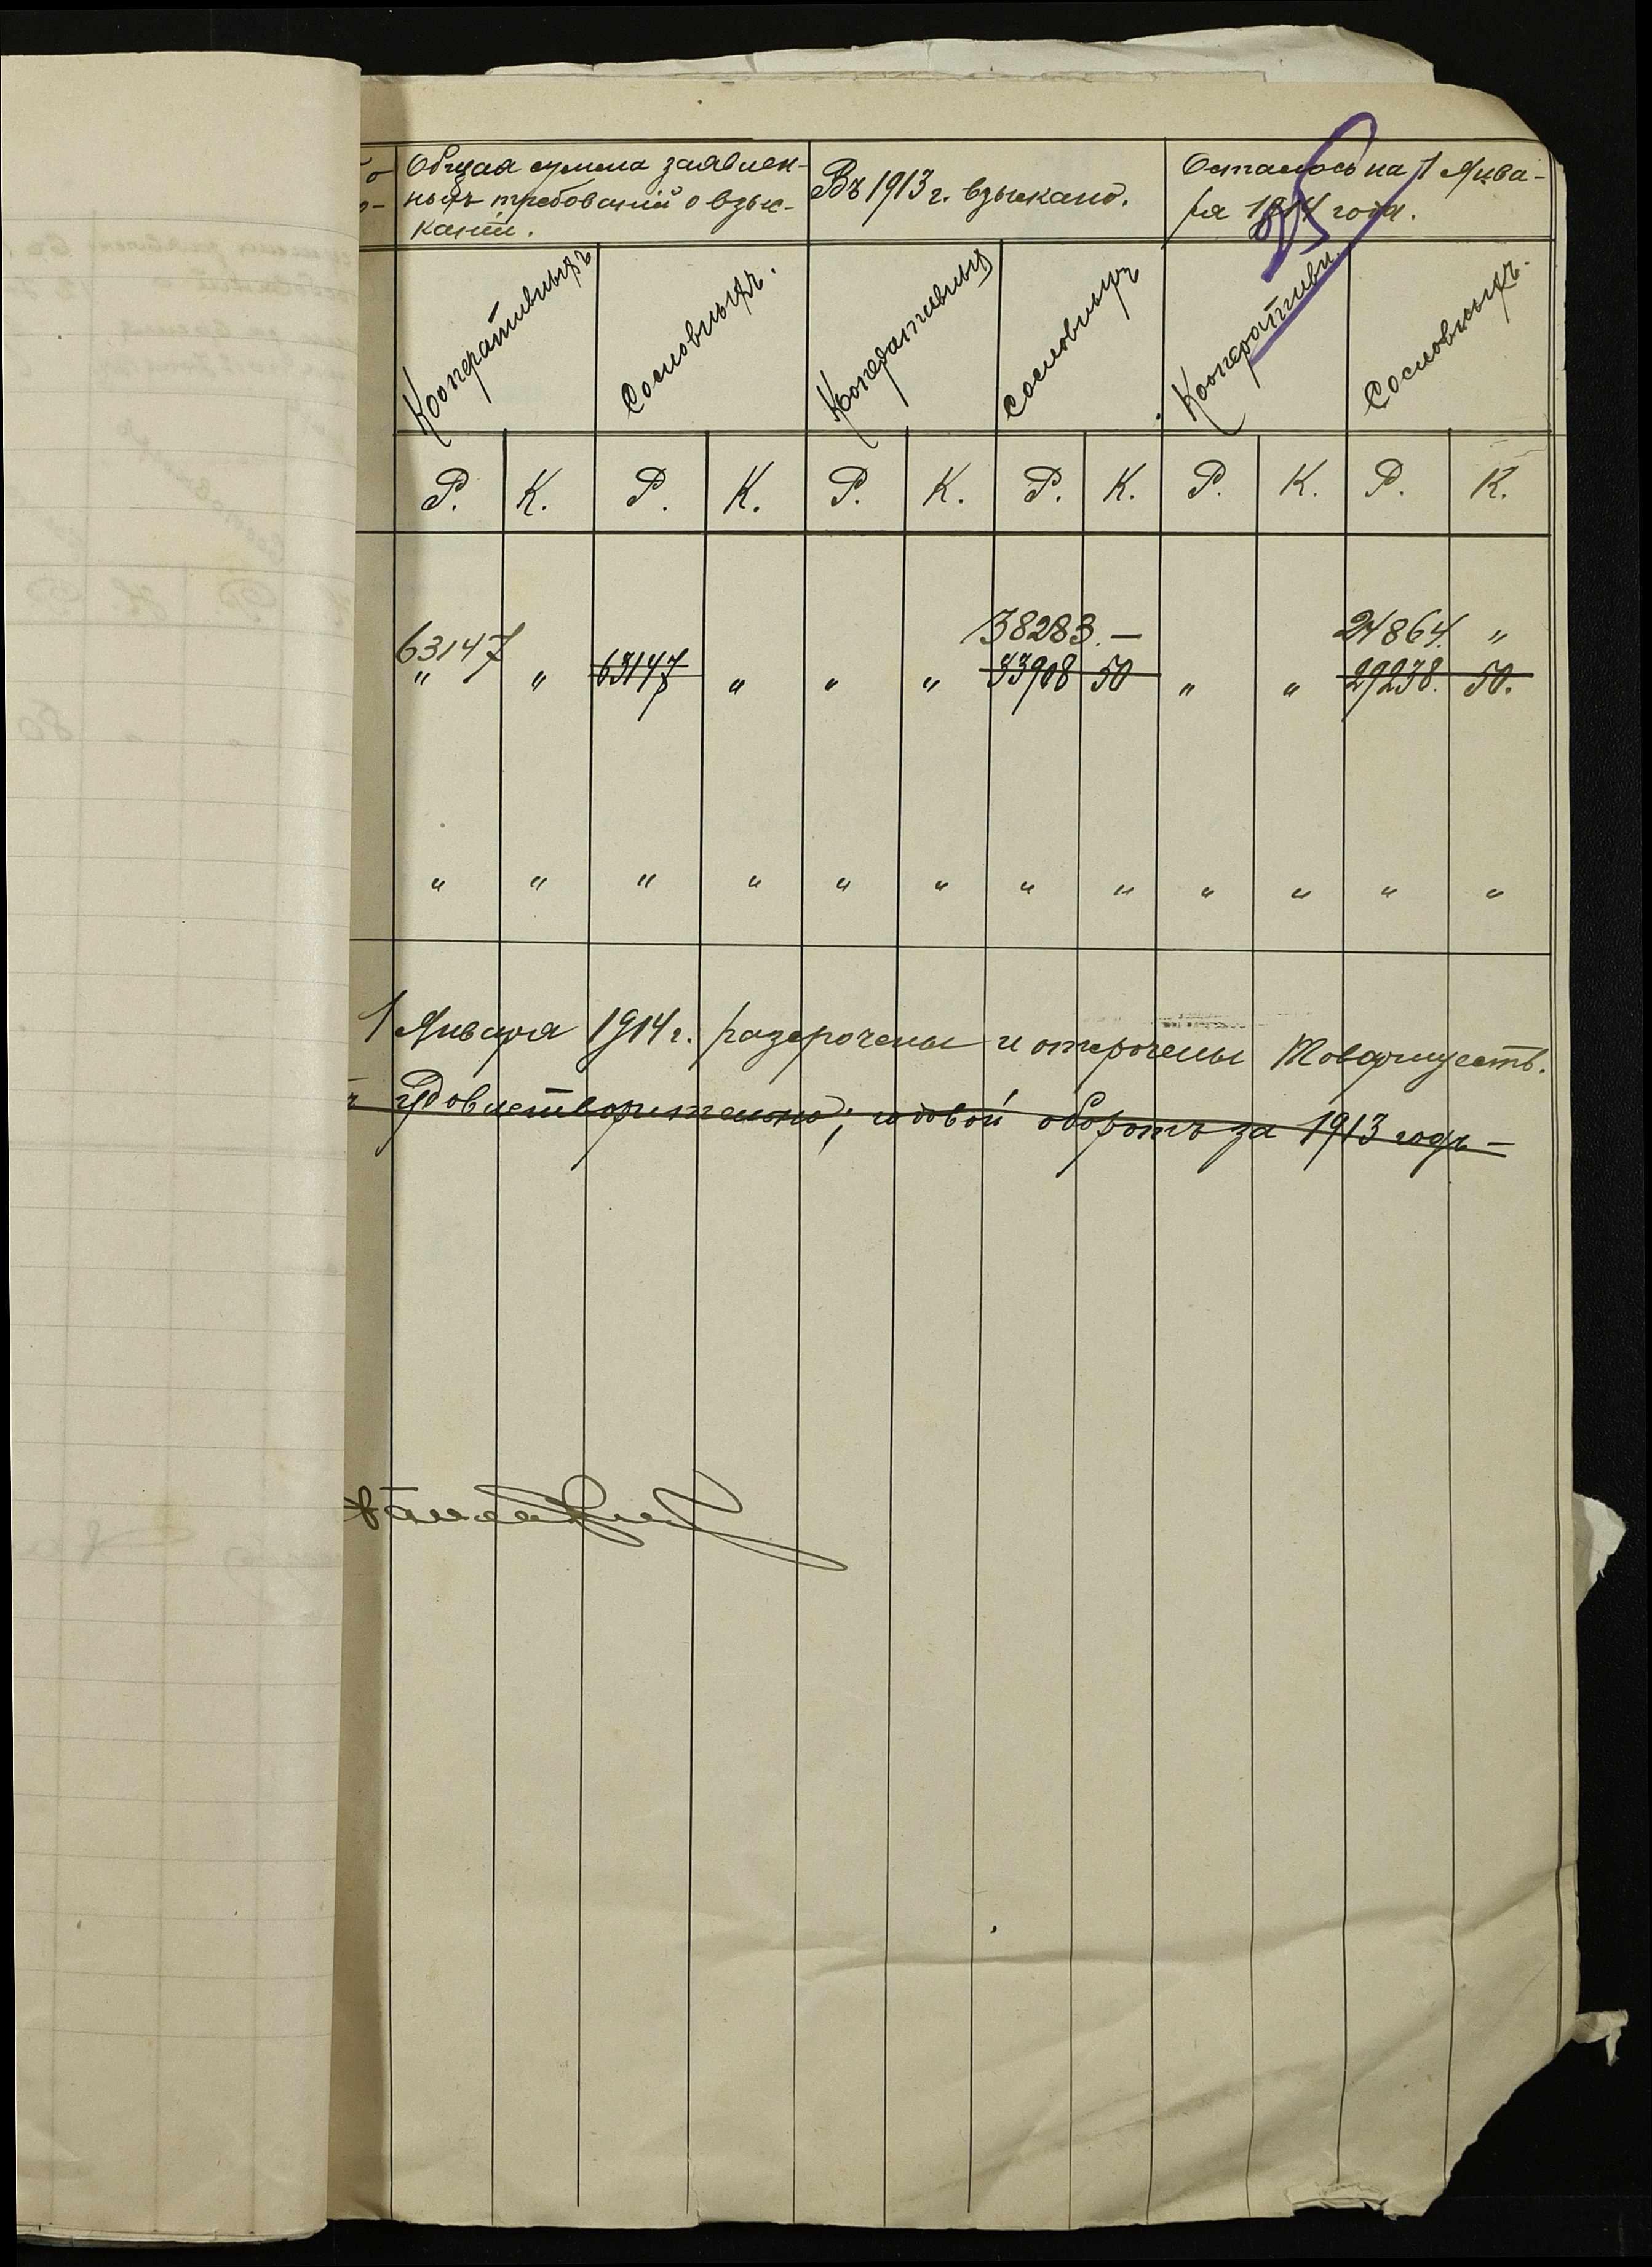 Общая сумма заявлен-
ныхъ требованій о взыс-
каніи.
Въ 1913 г. взыскано.
Осталось на 1 Янва-
ря 1914 года.
95
Кооперативныхъ
Сословныхъ.
Кооперативных
Сословныхъ
Кооперативн.
Сословныхъ.
Р. К. Р. К. Р. К. Р. К. Р. К. Р. К.
63147 38283. — 24864. "
" " 63147 " " " 33908 50 " " 29238. 50.
" " " " " " " " " " " "
1 Января 1914 г. разсрочены и отсрочены Товариществ.
удовлетворительно; годовой оборотъ за 1913 годъ —